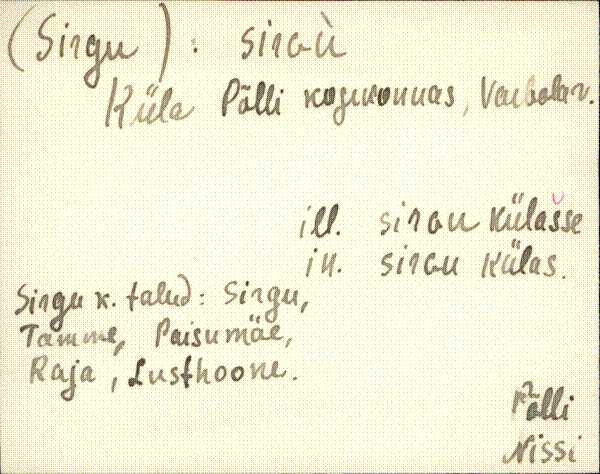 (Sirgu): sirGù
Küla Põlli kogukonnas, Vaibolav.
ill. sirGu külašse
in. sirGu külas.
Sirgu k. talud: Sirgu,
Tamme, Paisumäe,
Raja, Lusthoone.
Põlli
Nissi